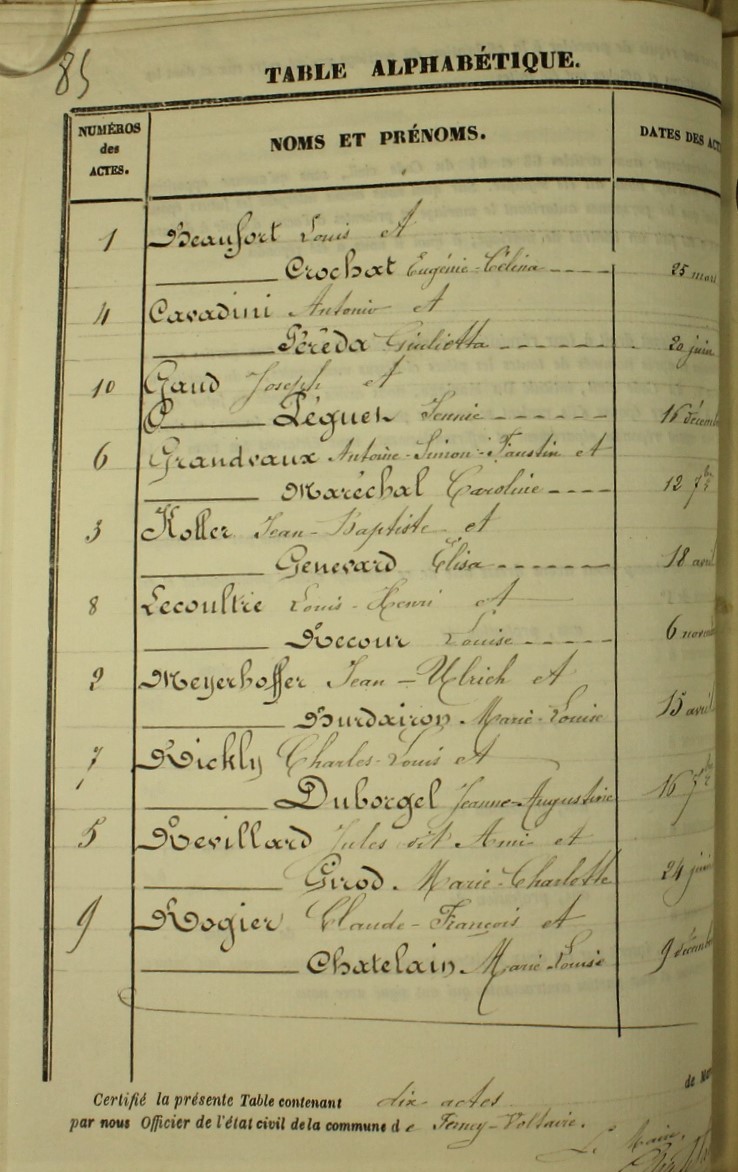 85
TABLE ALPHABÉTIQUE.
NUMÉROS des ACTES.
NOMS ET PRÉNOMS.
DATES DES ACT
1 Beaufort Louis et
Crochat Eugénie-Célina 25 mars
4 Cavadini Antonio et
Péréda Giuliotta 20 juin
10 Gaud Joseph et
Péguet Jennie 16 décemb
6 Grandvaux Antoine-Simon-Faustin et
Maréchal Caroline 12 7bre
3 Koller Jean-Baptiste et
Genevard Élisa 18 avril
8 Lecoultre Louis-Henri et
Recour Louise 6 novem
2 Meyerhoffer Jean-Ulrich et
Burdairon Marie-Louise 15 avril
7 Rickly Charles-Louis et
Duborgel Jeanne-Augustine 16 7bre
5 Revillard Jules dit Ami et
Girod Marie-Charlotte 24 juin
9 Rogier Claude-François et
Chatelain Marie-Louise 9 décemb
Certifié la présente Table contenant dix actes
par nous Officier de l'état civil de la commune de Ferney-Voltaire.
Le Maire,